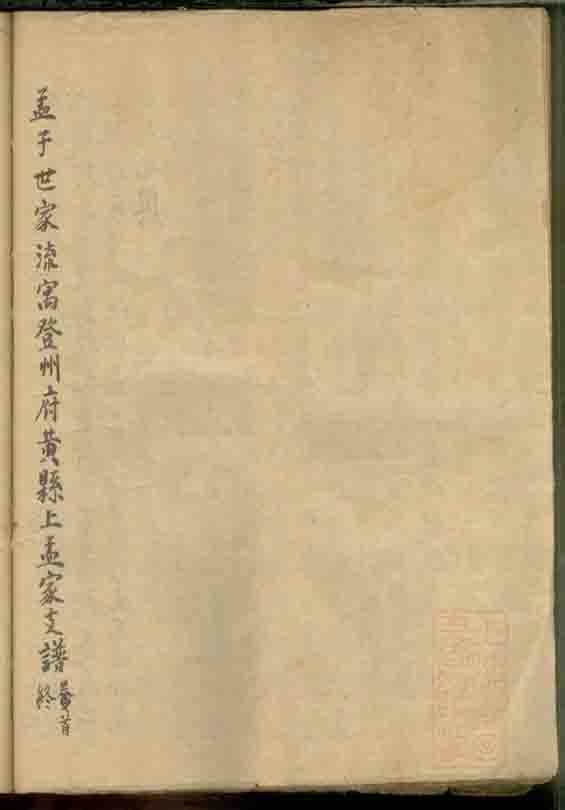 孟子世家流寓登州府黃縣上孟家支譜
卷首
終